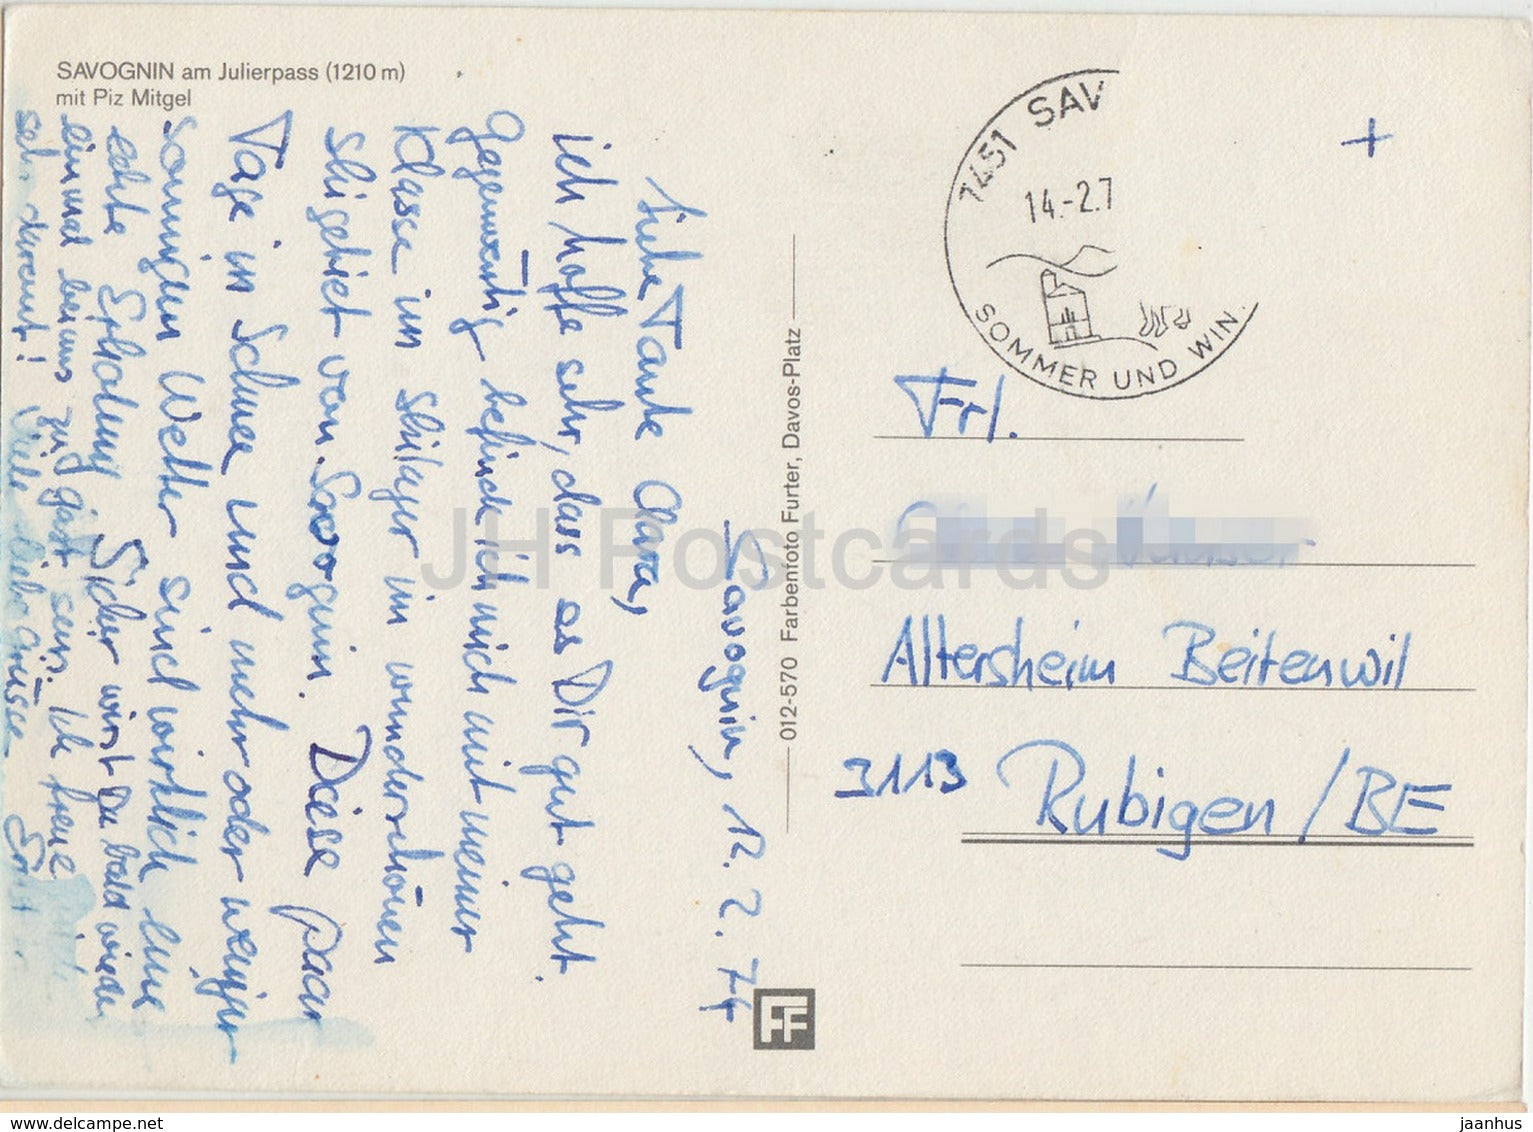 SAVOGNIN am Julierpass (1210 m)
mit Piz Mitgel
Savognin, 12. 2. 74
Liebe Tante Clara,
ich hoffe sehr, dass es Dir gut geht.
Gegenwärtig befinde ich mich mit meiner
Klasse im Skilager im wunderschönen
Skigebiet von Savognin. Diese paar
Tage in Schnee und mehr oder weniger
sonnigem Wetter sind wirklich eine
echte Erholung. Sicher wirst Du bald wieder
einmal bei uns zu Gast sein. Ich freue mich
sehr darauf! Viele liebe Grüsse
012-570 Farbenfoto Furter, Davos-Platz
FF
7451 SAV
14.-2.7
SOMMER UND WIN.
+
Frl.
Altersheim Beitenwil
3113 Rubigen / BE
JH Postcards
www.delcampe.net
jaanhus